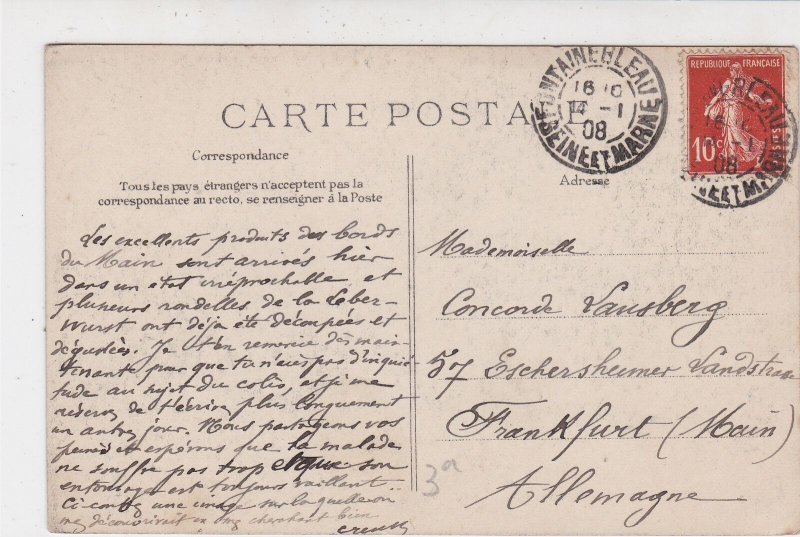 CARTE POSTALE
Correspondance
Tous les pays étrangers n'acceptent pas la
correspondance au recto, se renseigner à la Poste
Adresse
FONTAINEBLEAU
16 10
14 - 1
08
SEINE ET MARNE
REPUBLIQUE FRANÇAISE
10c
POSTES
Les excellents produits des bords
du Main sont arrivés hier
dans un état irréprochable et
plusieurs rondelles de la Leber-
wurst ont déjà été découpées et
dégustées. Je t'en remercie dès main-
tenant pour que tu n'aies pas d'inquié-
tude au sujet du colis, et je me
réserve de t'écrire plus longuement
un autre jour. Nous partageons vos
et espérons que ta malade
ne souffre pas trop et que son
entourage est toujours vaillant.
Ci-contre une image sur laquelle on
me découvrirait en me cherchant bien
Mademoiselle
Concorde Lausberg
57 Eschersheimer Landstrasse
Frankfurt (Main)
Allemagne
3a